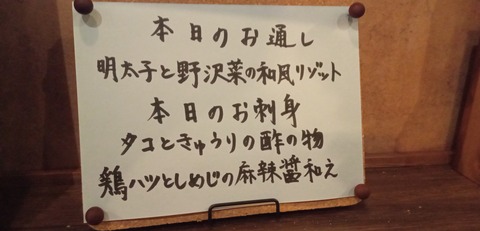 本日のお通し
明太子と野沢菜の和風リゾット
本日のお刺身
タコときゅうりの酢の物
鶏ハツとしめじの麻辣醤和え